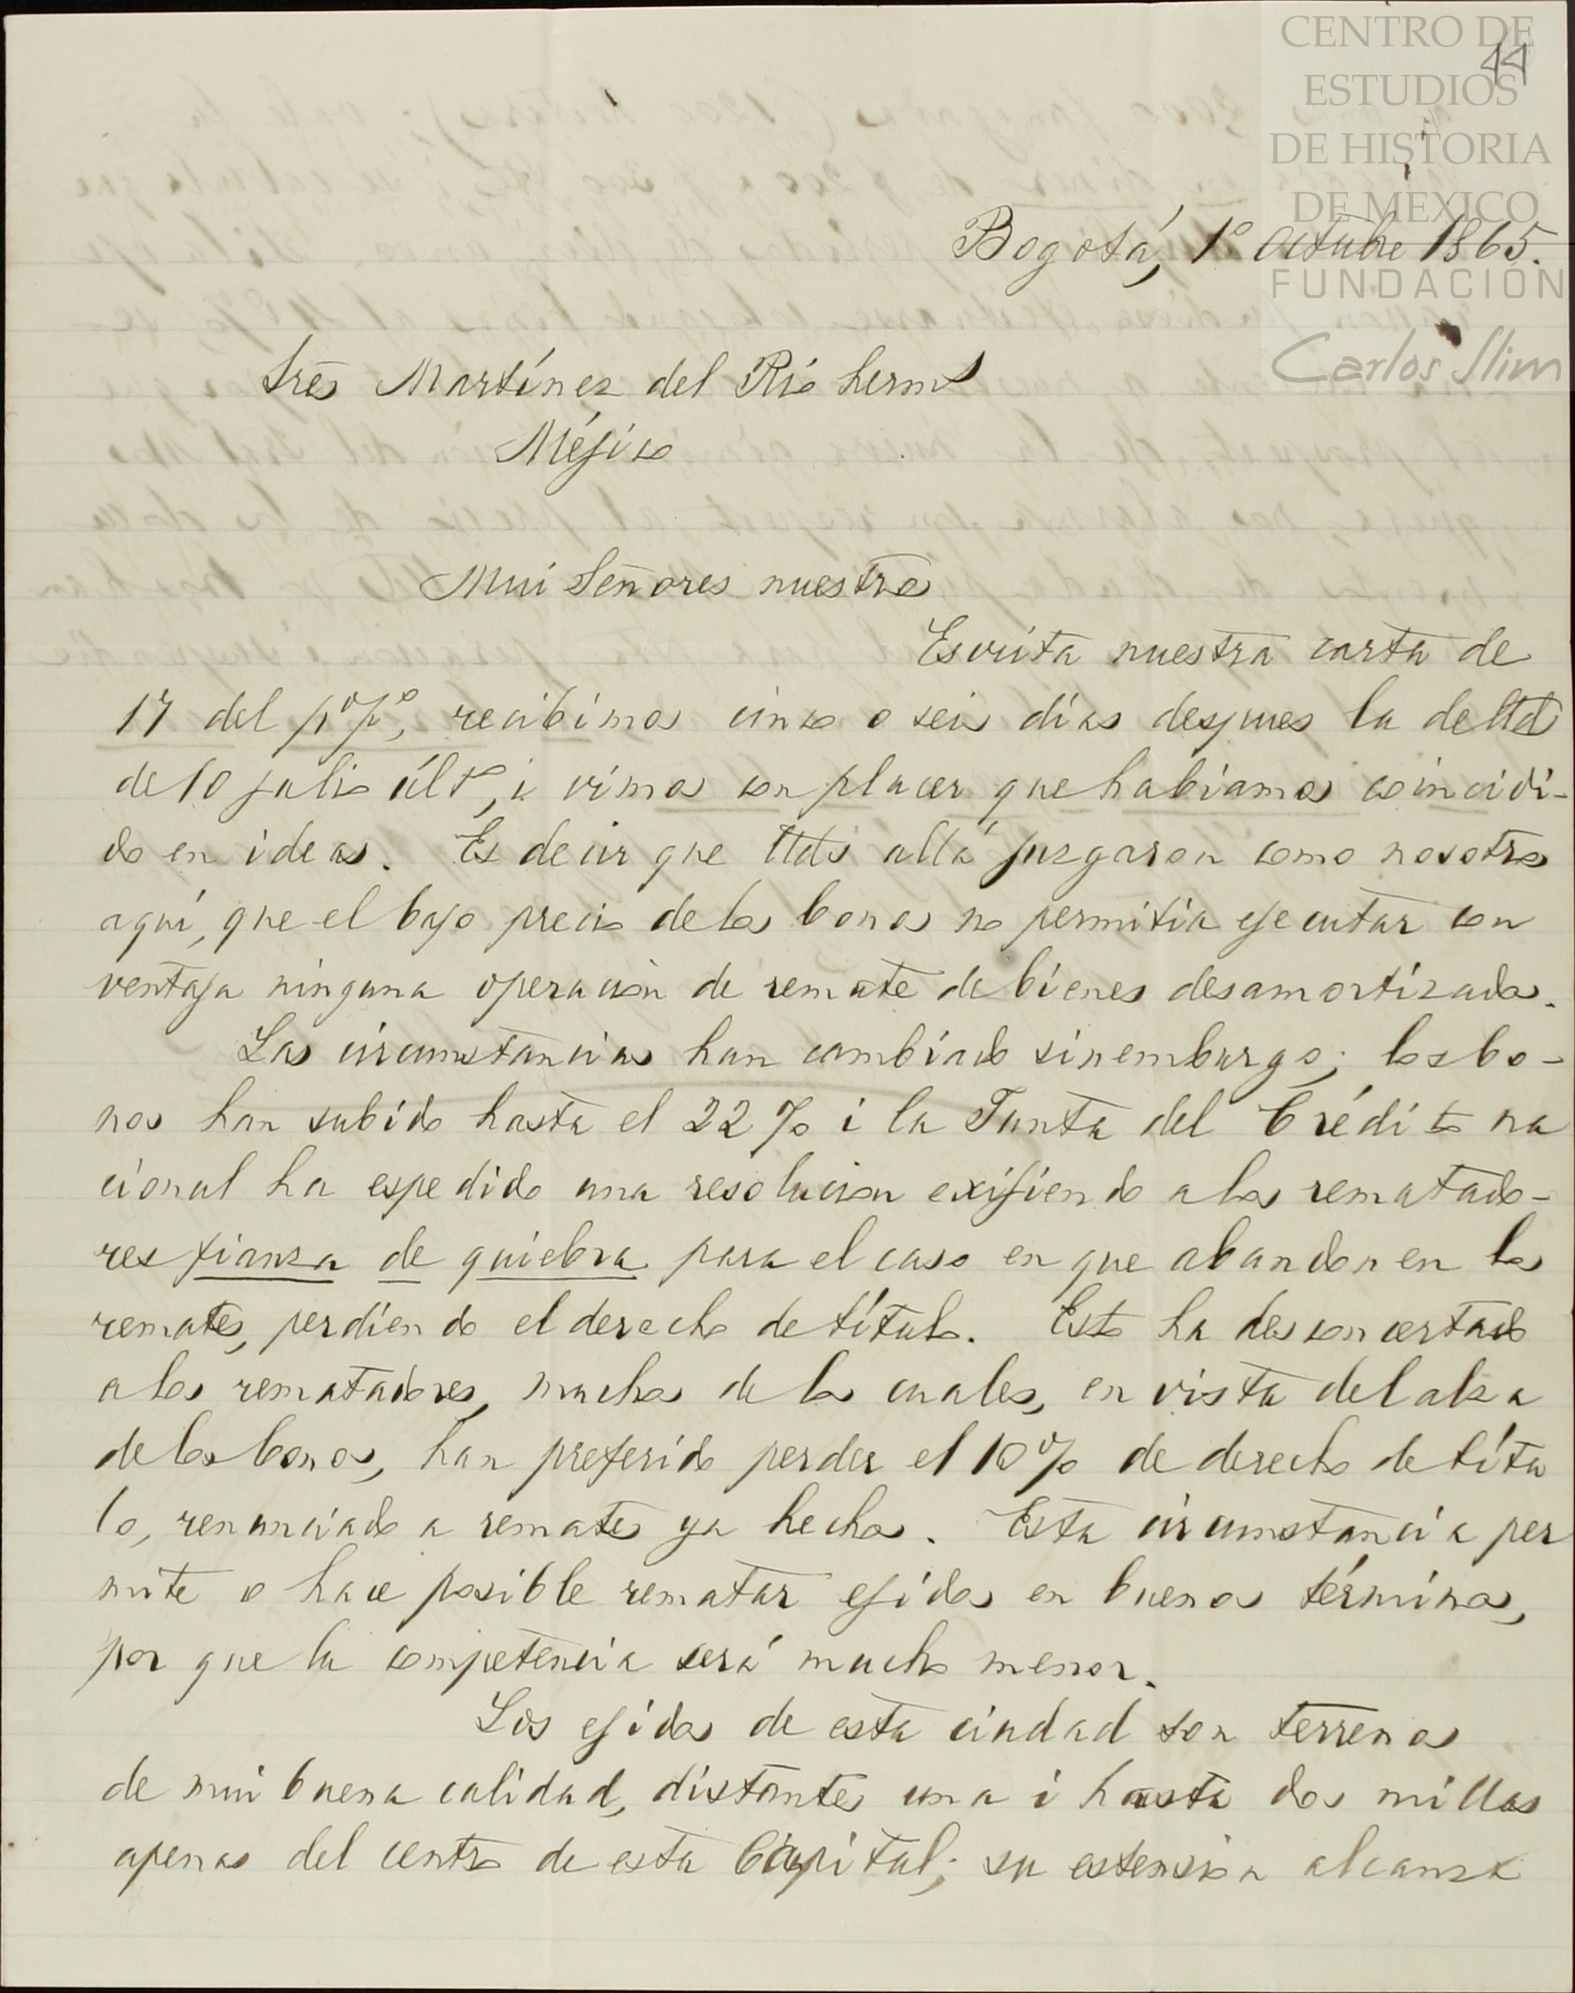 CENTRO DE
ESTUDIOS
DE HISTORIA
DE MEXICO
FUNDACIÓN
Carlos Slim
44
Bogotá, 1º Octubre 1865.
Sres Martínez del Rio hermS
Méjico
Mui Señores nuestros
Escrita nuestra carta de
17 del ppº, recibimos cinco o seis dias despues la de Utd
de 10 julio últº, i vimos con placer que habiamos coincidi-
do en ideas. Es decir que Utds allá juzgaron como nosotros
aquí, que el bajo precio de los bonos no permitia ejecutar con
ventaja ninguna operacion de remate de bienes desamortizados.
Las circunstancias han cambiado sinembargo; los bo-
nos han subido hasta el 22% i la Junta del Crédito na
cional ha espedido una resolucion exijiendo a los rematado-
res fianza de quiebra para el caso en que abandonen los
remates, perdiendo el derecho de título. Esto ha desconcertado
a los rematadores, muchos de los cuales, en vista del alza
de los bonos, han preferido perder el 10% de derecho de títu
lo, renunciado a remates ya hechos. Esta circunstancia per
mite o hace posible rematar ejidos en buenos términos,
por que la competencia será mucho menor.
Los ejidos de esta ciudad son terrenos
de mui buena calidad, distantes una i hasta dos millas
apenas del centro de esta Capital; su estension alcanza